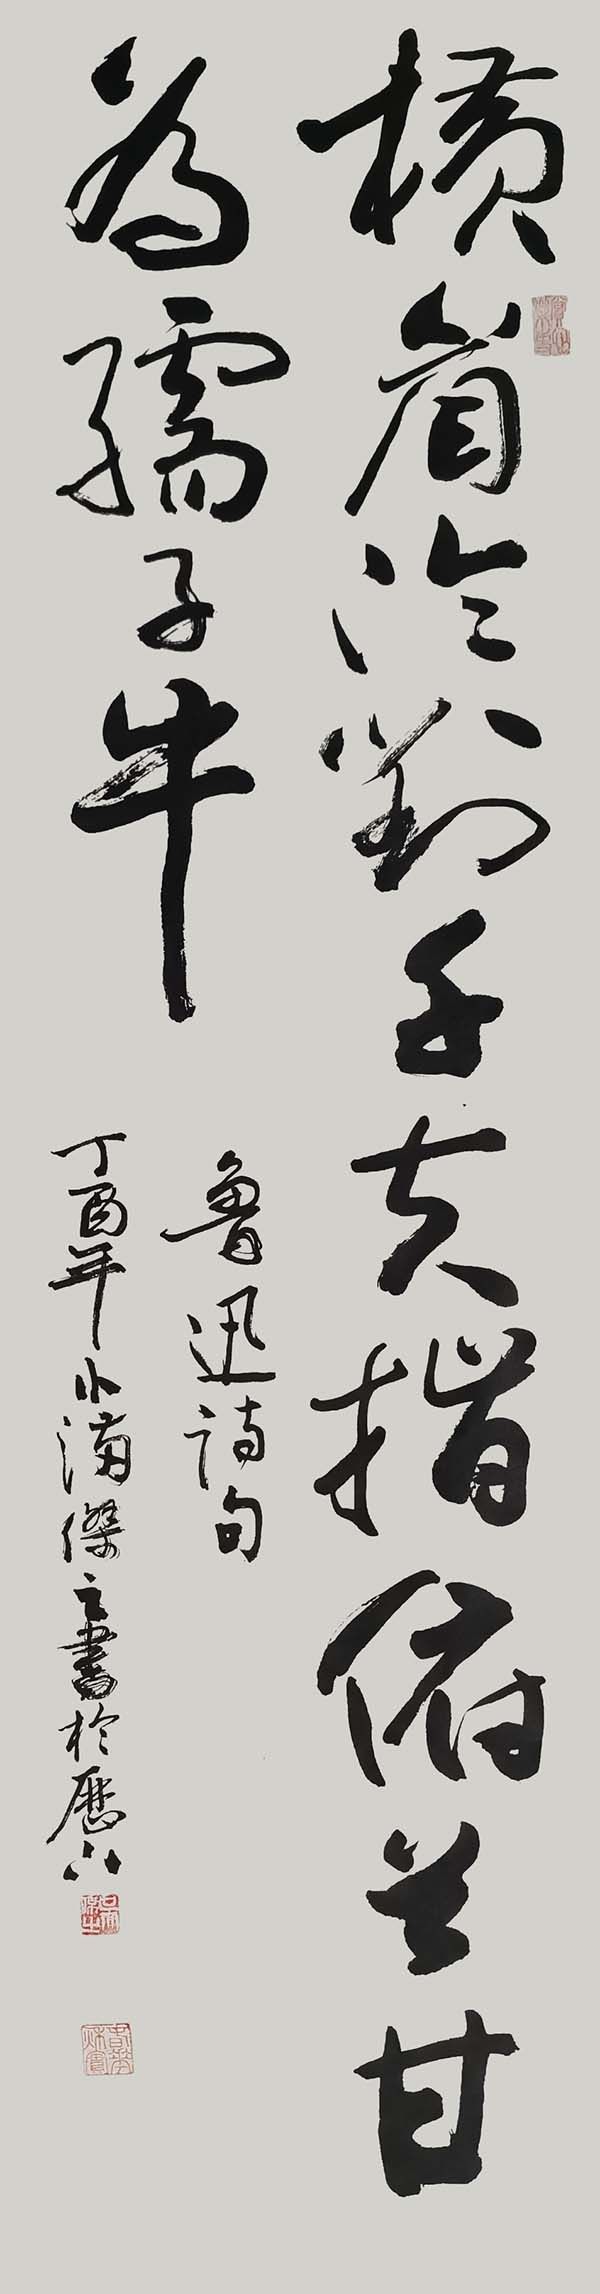 横眉冷對千夫指俯首甘
為孺子牛
魯迅詩句
丁酉年小滿傑之書於歷下